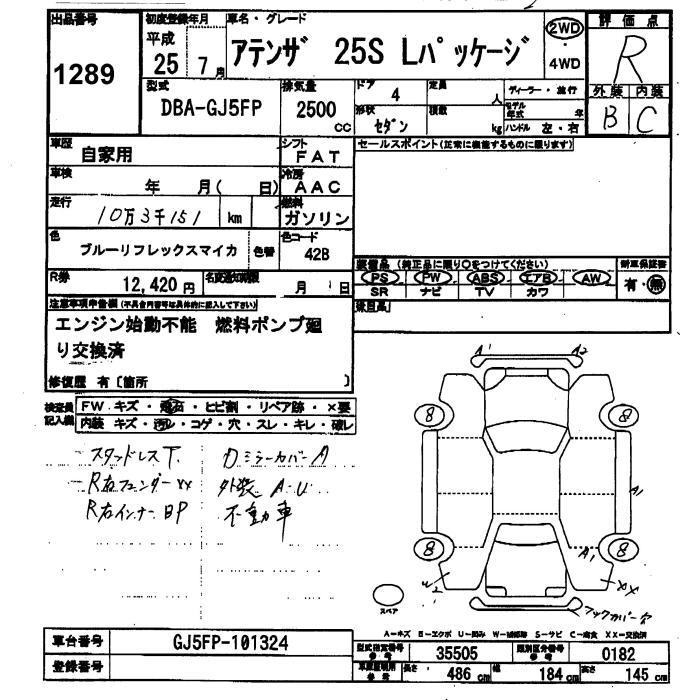 出品番号
1289
初度登録年月
平成
25年 7月
車名・グレード
アテンザ 25S Lパッケージ
2WD
・
4WD
評価点
R
外装 内装
B C
型式
DBA-GJ5FP
排気量
2500
cc
ドア
4
形状
セダン
定員
人
積数
kg
ディーラー・並行
モデル年式 年
ハンドル 左・右
車歴
自家用
シフト
FAT
車検
年 月( 日)
冷房
AAC
走行
10万3千151 km
燃料
ガソリン
色
ブルーリフレックスマイカ
色替
色コード
42B
R券
12,420円
名変通知期限
月 日
セールスポイント(正常に機能するものに限ります)
装備品 (純正品に限り○をつけてください)
PS PW ABS エアB AW
SR ナビ TV カワ
新車保証書
有・無
注意事項申告欄(不具合内容等は具体的に記入して下さい)
エンジン始動不能 燃料ポンプ廻
り交換済
修復歴 有〔箇所 〕
検査員
記入欄
FW キズ・飛石・ヒビ割・リペア跡・×要
内装 キズ・汚れ・コゲ・穴・スレ・キレ・破レ
スタッドレスT.
R右フェンダーxx
R右インナーBP
Dミラーカバー A
外装 A・U
不動車
A1 A2
8 8
A1
8 8
A1
W2 XX
バックカバーア
スペア
A-キズ B-エクボ U-凹み W-補修跡 S-サビ C-腐食 XX-交換済
車台番号
GJ5FP-101324
登録番号
型式指定番号
参考
35505
類別区分番号
参考
0182
長さ 486 cm 幅 184 cm 高さ 145 cm